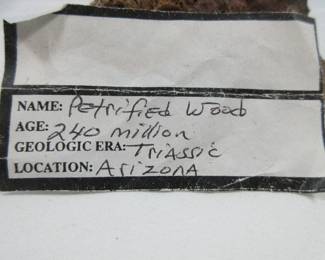 NAME: Petrified Wood
AGE: 240 million
GEOLOGIC ERA: Triassic
LOCATION: Arizona